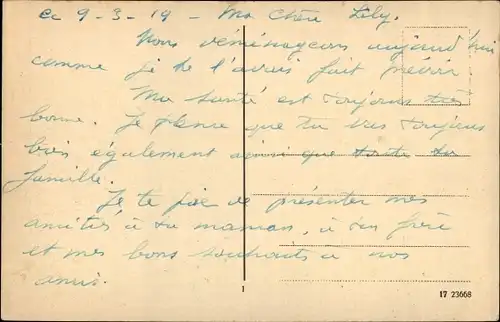 Le 9-3-19 - Ma chère Lily.
Nous déménageons aujourd'hui
comme je te l'avais fait prévoir
Ma santé est toujours très
bonne. Je pense que tu vas toujours
bien également ainsi que toute ta
famille.
Je te prie de présenter mes
amitiés à ta maman, à ton frère
et mes bons souhaits à nos
amis.
1
17 23668